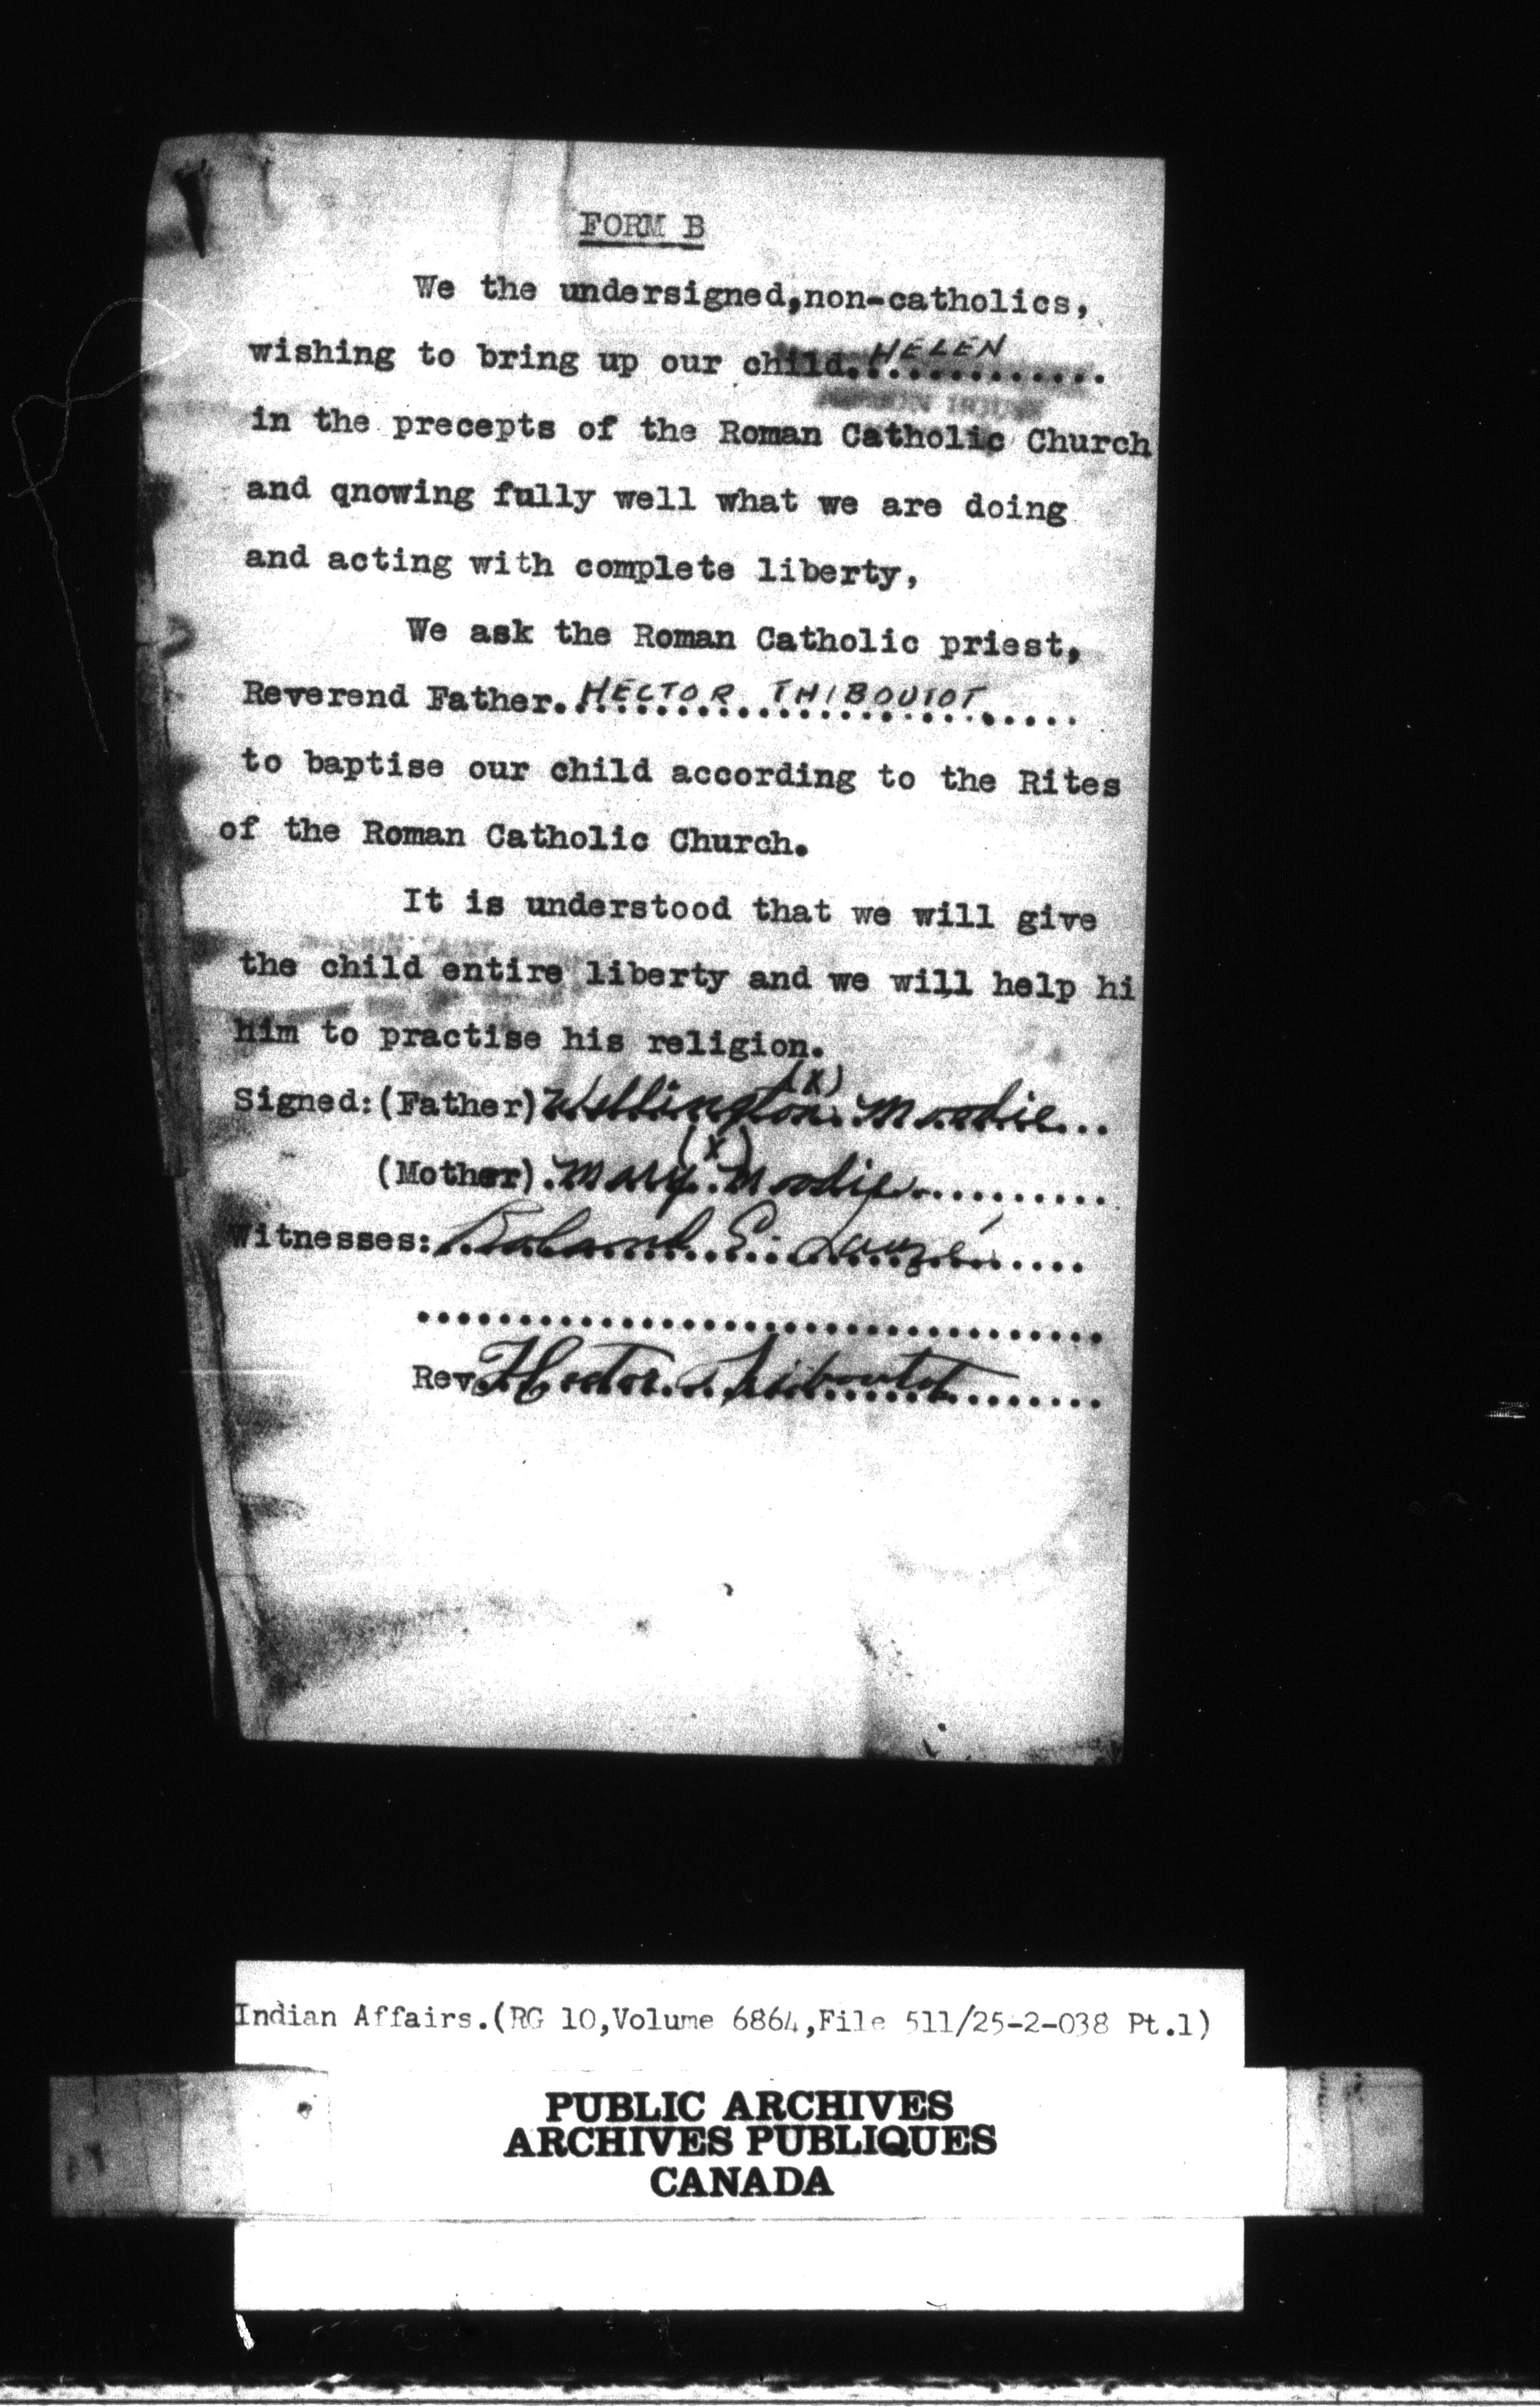 FORM B
We the undersigned,non-catholics,
wishing to bring up our child..HELEN............
in the precepts of the Roman Catholic Church
and qnowing fully well what we are doing
and acting with complete liberty,
We ask the Roman Catholic priest,
Reverend Father.HECTOR THIBOUTOT.....
to baptise our child according to the Rites
of the Roman Catholic Church.
It is understood that we will give
the child entire liberty and we will help hi
him to practise his religion.
Signed:(Father)Wellington (X) Moodie...
(Mother).Mary (X) Moodie..........
Witnesses:..Roland E. Lauzé.....
...................................
Rev.Hector Thiboutot........
Indian Affairs.(RG 10,Volume 6864,File 511/25-2-038 Pt.1)
PUBLIC ARCHIVES
ARCHIVES PUBLIQUES
CANADA